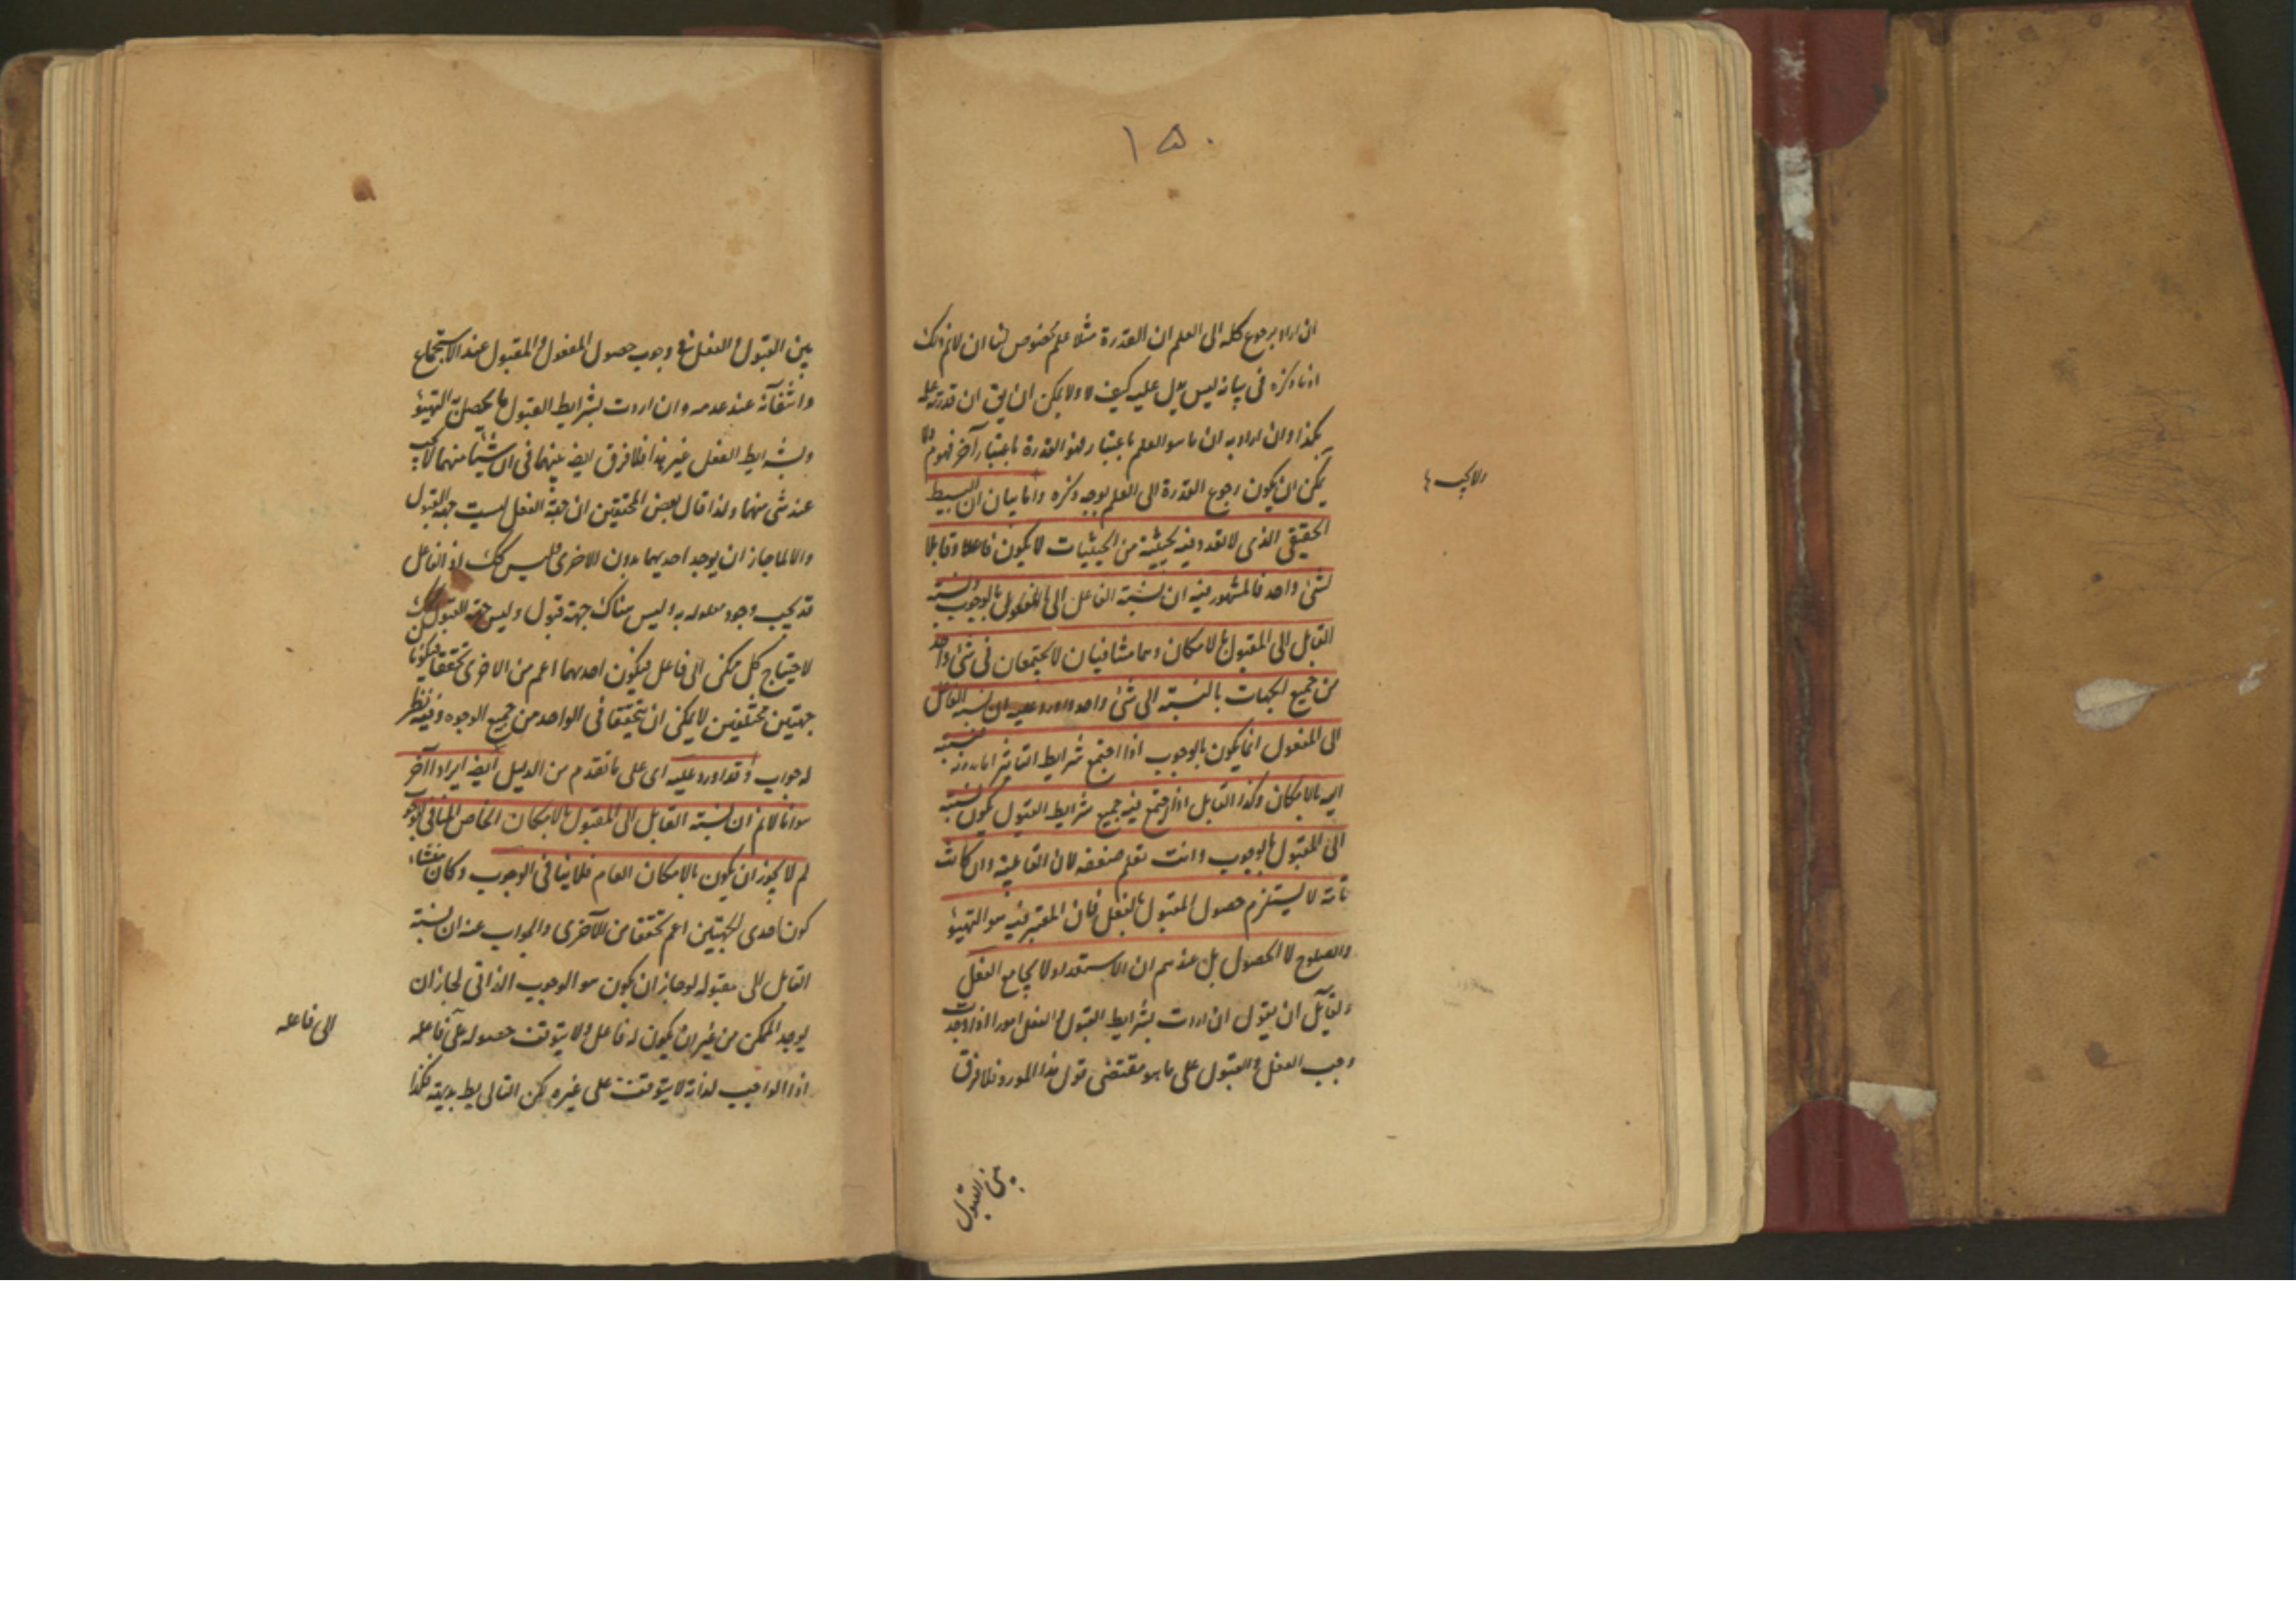 ١۵٠
ان اراد برجوع كله الى العلم ان القدرة مثلا علم مخصوص لنا ان لانم ذلك
اذ ما ذكره فى بيانه ليس يدل عليه كيف لا ولا يمكن ان يق ان قدرته علمه
بكذا وان اراد به ان ما هو العلم باعتبار فهو القدرة باعتبار آخر فهو م ولا
يمكن ان يكون رجوع القدرة الى العلم بوجه ذكره واما بيان ان البسيط
الحقيقى الذى لا تعدد فيه لحيثية من الحيثيات لا يكون فاعلا وقابلا
لشئ واحد فالمشهور فيه ان نسبة الفاعل الى المفعول بالوجوب ونسبة
القابل الى المقبول بالامكان وهما متنافيان لا يجتمعان فى شئ واحد
من جميع الجهات بالنسبة الى شئ واحد واورد عليه ان نسبة الفاعل
الى المفعول انما يكون بالوجوب اذا اجتمع شرايط التاثير اما بدونه فنسبته
اليه بالامكان وكذا القابل اذا اجتمع فيه جميع شرايط القبول يكون نسبته
الى المقبول بالوجوب وانت تعلم ضعفه لان القابلية وان كانت
تامة لا يستلزم حصول المقبول بالفعل فان المعتبر فيه هو التهيؤ
والصلوح لا الحصول بل عندهم ان الاستعداد لا يجامع الفعل
ولقايل ان يقول ان اردت بشرايط القبول والفعل امورا اذا وجدت
وجب الفعل والقبول على ما هو مقتضى قول هذا المورد فلا فرق
بين القبول
بين القبول والفعل فى وجوب حصول المفعول والمقبول عند الاستجماع
وانتفائه عند عدمه وان اردت بشرايط القبول ما يحصل به التهيؤ
وبشرايط الفعل غير هذا فلا فرق ايضا بينهما فى ان شيئا منهما لا يجب
عند شئ منهما ولذا قال بعض المحققين ان جهة الفعل ليست جهة القبول
والا لما جاز ان يوجد احديهما بدون الاخرى وليس كك اذ الفاعل
قد يجب وجود معلوله به وليس هناك جهة قبول وليس جهة القبول كك
لاحتياج كل ممكن الى فاعل فيكون احدهما اعم من الاخرى تحققا فيكونا
جهتين مختلفين لا يمكن ان يتحققا فى الواحد من جميع الوجوه وفيه نظر
له جواب وقد اورد عليه اى على ما تقدم من الدليل ايضا ايرادا آخر
هو انا لانم ان نسبة القابل الى المقبول بالامكان الخاص المنافى للوجوب
لم لا يجوز ان يكون بالامكان العام فلا ينافى الوجوب وكان منشاء
كون احدى الجهتين اعم تحققا من الآخرى والجواب عنه ان نسبة
القابل الى مقبوله لو جاز ان يكون هو الوجوب الذاتى لجاز ان
يوجد الممكن من غير ان يكون له فاعل ولا يتوقف حصوله على فاعله
الى فاعله
اذ الواجب لذاته لا يتوقف على غيره لكن التالى بط بديهة فكذا